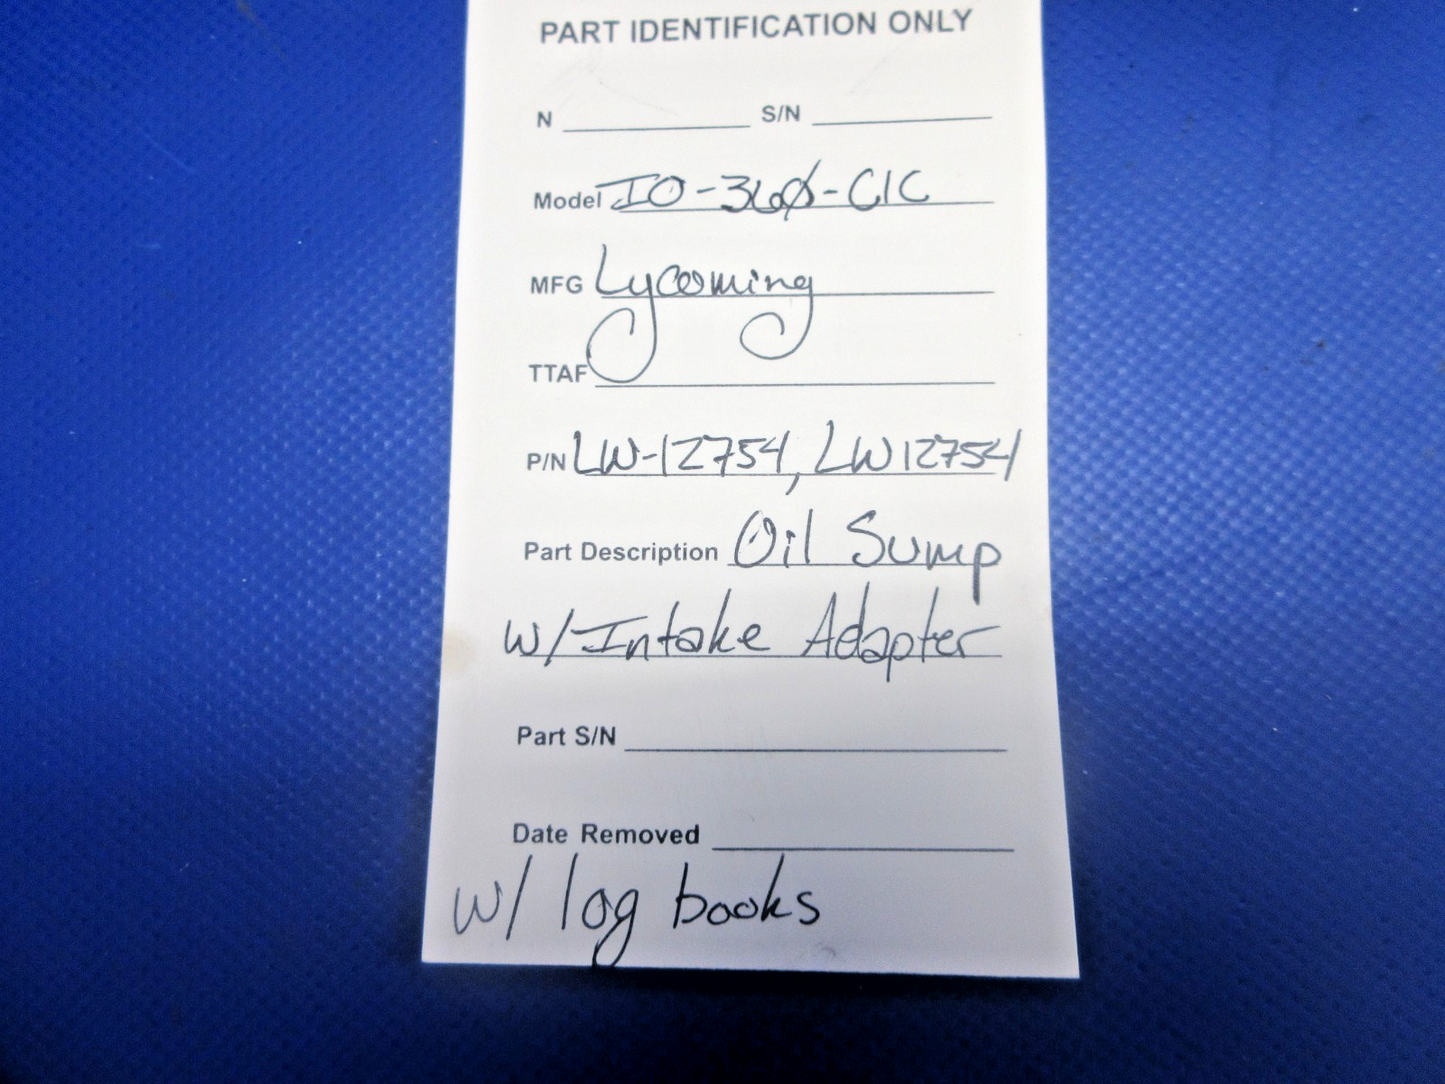 PART IDENTIFICATION ONLY
N S/N
Model IO-360-C1C
MFG Lycoming
TTAF
P/N LW-12754, LW12754
Part Description Oil Sump
w/Intake Adapter
Part S/N
Date Removed
w/ log books